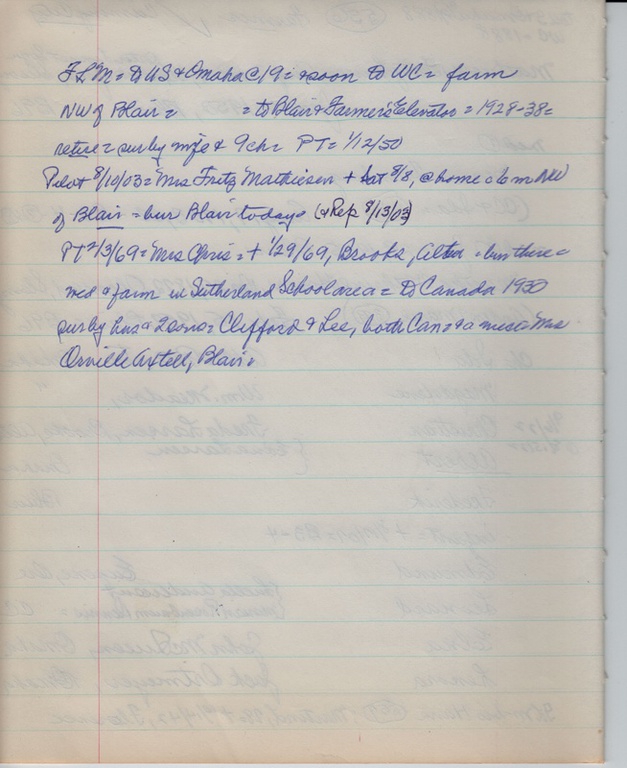 FLM = To US & Omaha c/9 = soon to WC = farm
NW of Blair = = to Blair & Farmers Elevator = 1928-38 =
retire = sur by wife & 9 ch = PT = 1/12/50
Pilot 8/10/03 = Mrs Fritz Mathiesen + Sat 8/8, @ home c 6 m NW
of Blair = bur Blair today = (& Rep 8/13/03)
PT 2/3/69 = Mrs Chris = + 1/29/69, Brooks, Alta = bur there =
wed & farm in Sutherland School area = To Canada 1930
sur by hus & 2 sons = Clifford & Lee, both Can = & a niece = Mrs
Orville Axtell, Blair =